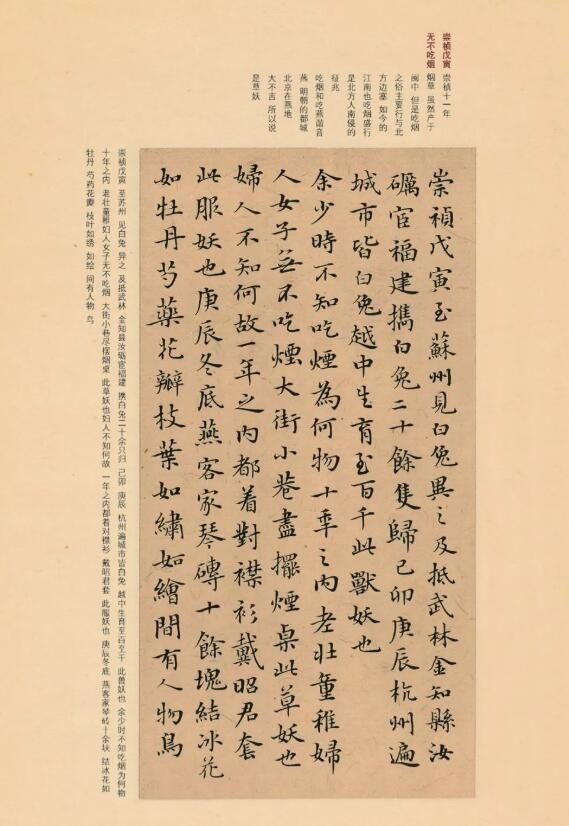 崇祯戊寅
无不吃烟
崇祯十一年
烟草 虽然产于
闽中 但是吃烟
之俗主要行与北
方边塞 如今的
江南也吃烟盛行
是北方人南侵的
征兆
吃烟和吃燕谐音
燕 明朝的都城
北京在燕地
大不吉 所以说
是草妖
崇禎戊寅至蘇州見白兔異之及抵武林金知縣汝
礪宦福建攜白兔二十餘隻歸己卯庚辰杭州遍
城市皆白兔越中生育至百千此獸妖也
余少時不知吃煙為何物十年之內老壯童稚婦
人女子無不吃煙大街小巷盡擺煙桌此草妖也
婦人不知何故一年之內都着對襟衫戴昭君套
此服妖也庚辰冬底燕客家琴磚十餘塊結冰花
如牡丹芍藥花瓣枝葉如繡如繪間有人物鳥
崇祯戊寅 至苏州 见白兔 异之 及抵武林 金知县汝砺宦福建 携白兔二十余只归 己卯 庚辰 杭州遍城市皆白兔 越中生育至百至千 此兽妖也 余少时不知吃烟为何物
十年之内 老壮童稚妇人女子无不吃烟 大街小巷尽摆烟桌 此草妖也妇人不知何故 一年之内都着对襟衫 戴昭君套 此服妖也 庚辰冬底 燕客家琴砖十余块 结冰花如
牡丹 芍药花瓣 枝叶如绣 如绘 间有人物 鸟